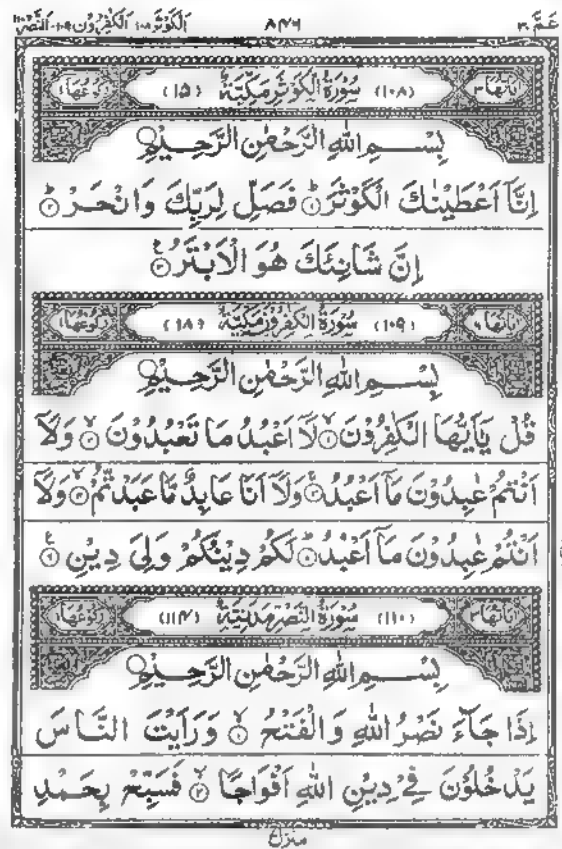 عَمَّ ۳۰ ۸۴۶ الْكَوْثَر ۱۰۸ الْكٰفِرُوْن ۱۰۹ النَّصْر ۱۱۰
اٰيَاتُهَا ۳ (۱۰۸) سُوْرَةُ الْكَوْثَرِ مَكِّيَّةٌ (۱۵) رُكُوْعُهَا ۱
بِسْــمِ اللهِ الرَّحْمٰنِ الرَّحِــيْمِ
اِنَّاۤ اَعْطَيْنٰكَ الْكَوْثَرَؕ ۝۱ فَصَلِّ لِرَبِّكَ وَانْحَرْؕ ۝۲
اِنَّ شَانِئَكَ هُوَ الْاَبْتَرُ ۝۳
اٰيَاتُهَا ۶ (۱۰۹) سُوْرَةُ الْكٰفِرُوْنَ مَكِّيَّةٌ (۱۸) رُكُوْعُهَا ۱
بِسْــمِ اللهِ الرَّحْمٰنِ الرَّحِــيْمِ
قُلْ يٰۤاَيُّهَا الْكٰفِرُوْنَۙ ۝۱ لَاۤ اَعْبُدُ مَا تَعْبُدُوْنَۙ ۝۲ وَلَاۤ
اَنْتُمْ عٰبِدُوْنَ مَاۤ اَعْبُدُۚ ۝۳ وَلَاۤ اَنَا عَابِدٌ مَّا عَبَدْتُّمْۙ ۝۴ وَلَاۤ
اَنْتُمْ عٰبِدُوْنَ مَاۤ اَعْبُدُؕ ۝۵ لَكُمْ دِيْنُكُمْ وَلِيَ دِيْنِ ۝۶
اٰيَاتُهَا ۳ (۱۱۰) سُوْرَةُ النَّصْرِ مَدَنِيَّةٌ (۱۱۴) رُكُوْعُهَا ۱
بِسْــمِ اللهِ الرَّحْمٰنِ الرَّحِــيْمِ
اِذَا جَآءَ نَصْرُ اللهِ وَالْفَتْحُۙ ۝۱ وَرَاَيْتَ النَّاسَ
يَدْخُلُوْنَ فِيْ دِيْنِ اللهِ اَفْوَاجًاۙ ۝۲ فَسَبِّحْ بِحَمْدِ
منزل